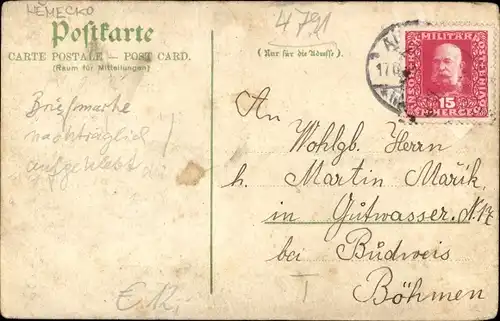 NĚMECKO
4791
Postkarte
CARTE POSTALE — POST CARD.
(Raum für Mitteilungen)
(Nur für die Adresse)
MILITÄR POST
15
Briefmarke
nachträglich
aufgeklebt
An
Wohlgb. Herrn
h. Martin Mařik
in Gutwasser. N. 17
bei Budweis
Böhmen
E.12,